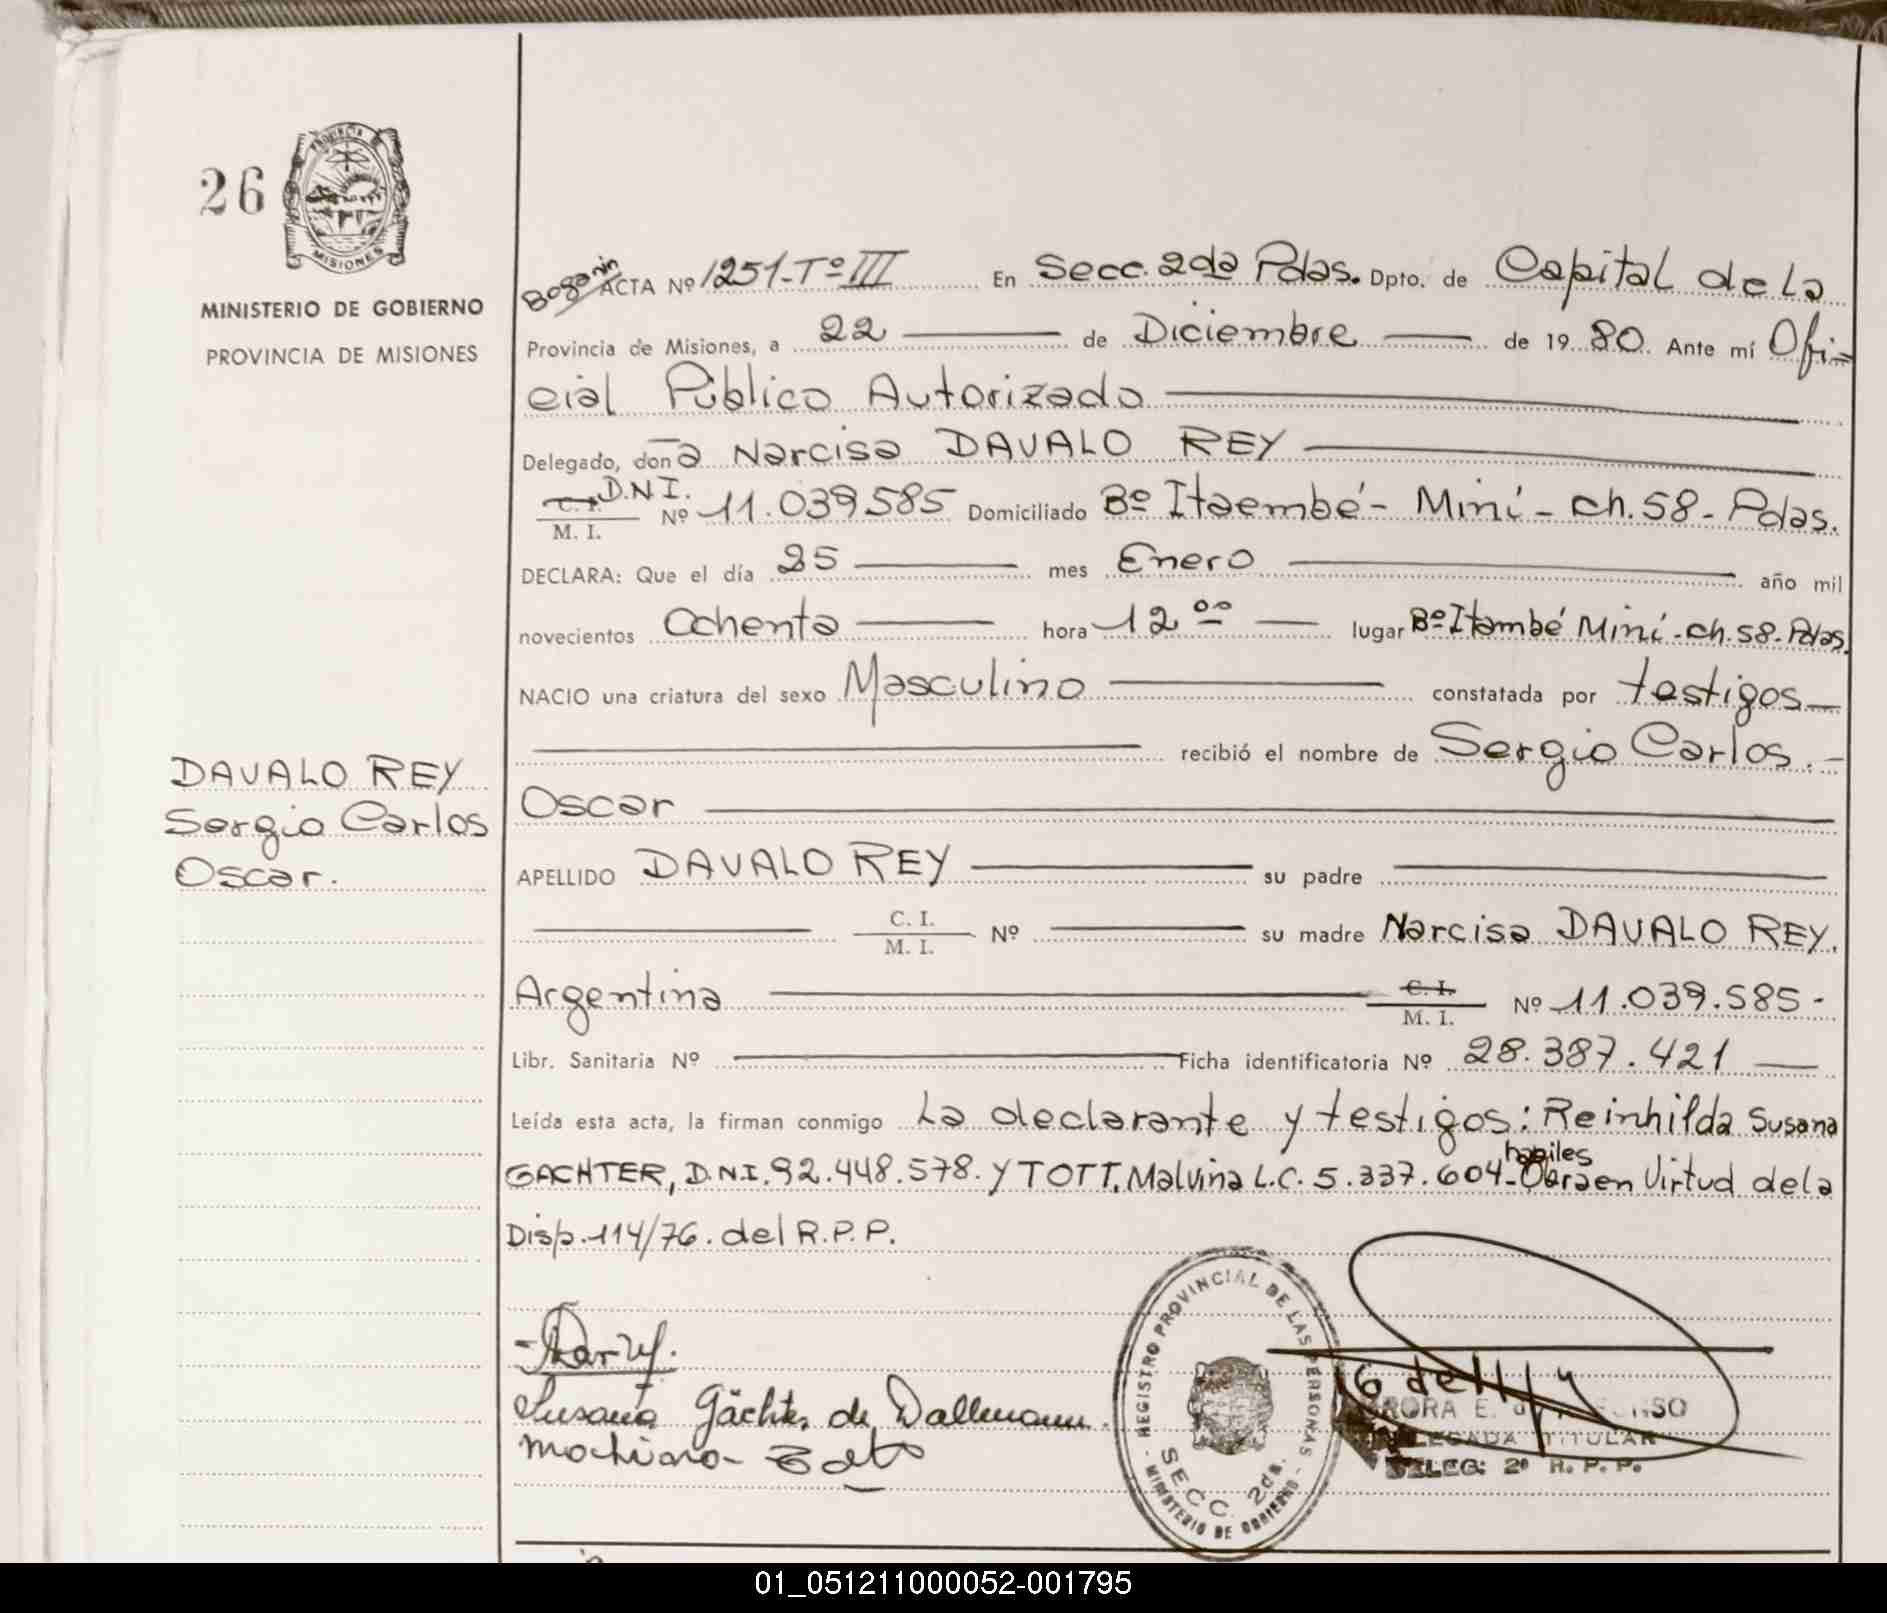 26
PROVINCIA
MISIONES
MINISTERIO DE GOBIERNO
PROVINCIA DE MISIONES
ACTA Nº 1251-Tº III En Secc. 2da Pdas. Dpto. de Capital de la
Provincia de Misiones, a 22 de Diciembre de 19 80. Ante mí Ofi-
cial Público Autorizado
Delegado, donã Narcisa DAVALO REY
C. I. D.N.I.
M. I. Nº 11.039585 Domiciliado Bº Itaembé - Miní - ch. 58 - Pdas.
DECLARA: Que el día 25 mes Enero año mil
novecientos Ochenta hora 12 ºº lugar Bº Itambé Miní - ch. 58 - Pdas.
NACIO una criatura del sexo Masculino constatada por testigos
recibió el nombre de Sergio Carlos.-
Oscar
DAVALO REY
Sergio Carlos
Oscar.
APELLIDO DAVALO REY su padre
C. I.
M. I. Nº su madre Narcisa DAVALO REY.
Argentina C. I.
M. I. Nº 11.039.585-
Libr. Sanitaria Nº Ficha identificatoria Nº 28.387.421
Leída esta acta, la firman conmigo La declarante y testigos: Reinhilda Susana
GACHTER, D.N.I. 92.448.578. y TOTT, Malvina L.C. 5.337.604- habiles Obra en Virtud de la
Disp. 114/76. del R.P.P.
Susana Gächter de Dallmann.
REGISTRO PROVINCIAL DE LAS PERSONAS
SECC. 2da.
- MINISTERIO DE GOBIERNO -
DELEGADA TITULAR
DELEG: 2ª R. P. P.
01_051211000052-001795